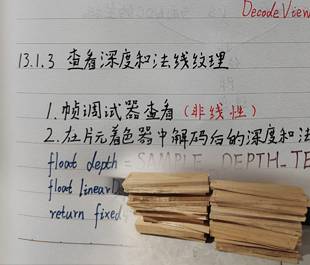 DecodeView
13.1.3 查看深度和法线纹理
1. 帧调试器查看（非线性）
2. 在片元着色器中解码后的深度和法
float depth = SAMPLE_DEPTH_TE
float linear
return fixed